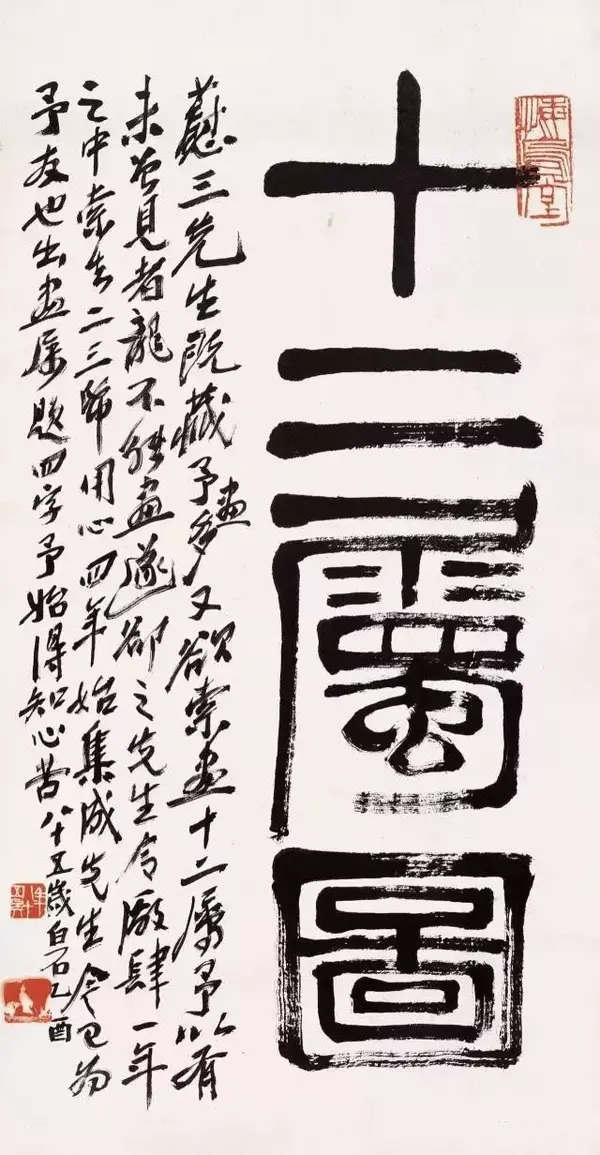 悔烏堂
十二屬圖
慰三先生既藏予畫多又欲索畫十二屬予以有
未曾見者龍不能畫遂卻之先生令廠肆一年
之中索去二三幀用心四年始集成先生今已為
予友也出畫屬題四字予始得知心苦八十五歲白石乙酉